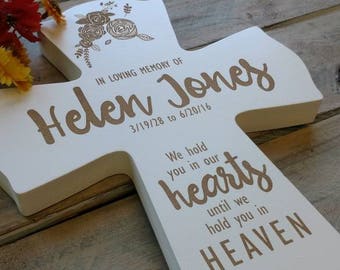 IN LOVING MEMORY OF
Helen Jones
3/19/28 to 6/20/16
We hold
you in our
hearts
until we
hold you in
HEAVEN